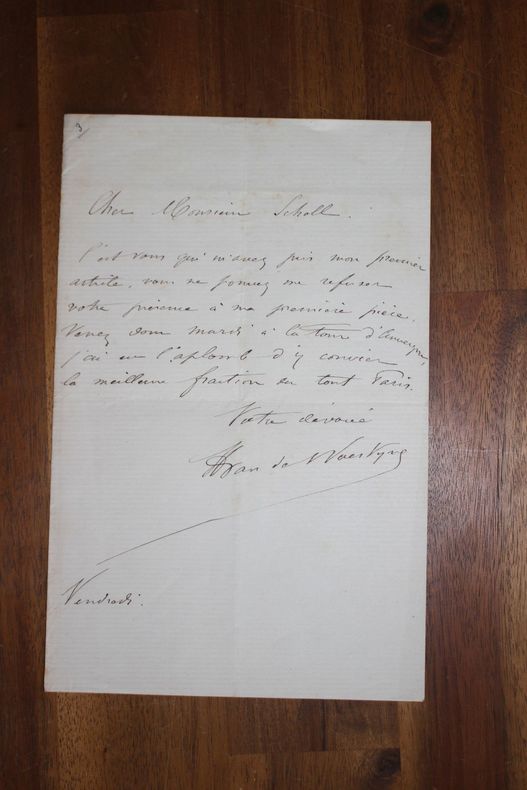 3
Cher Monsieur Scholl.
C'est vous qui m'avez pris mon premier
article, vous ne pouvez me refuser
votre présence à ma première pièce.
Venez donc mardi à la tour d'Auvergne,
j'ai eu l'aplomb d'y convier
la meilleure fraction du tout Paris.
Votre dévoué
Van de
Vendredi.